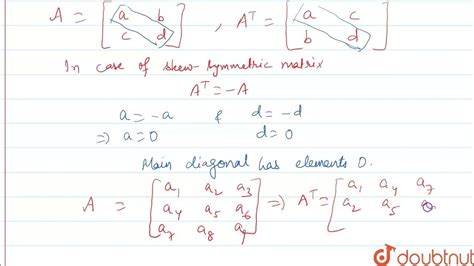 A = [ a b , Aᵀ = [ a c
c d ] b d ]
In case of skew-symmetric matrix
Aᵀ = -A
a = -a & d = -d
⇒ a = 0 d = 0
Main diagonal has elements 0.
A = [ a₁ a₂ a₃ ⇒ Aᵀ = [ a₁ a₄ a₇
a₄ a₅ a₆ a₂ a₅
a₇ a₈ a₉ ]
doubtnut